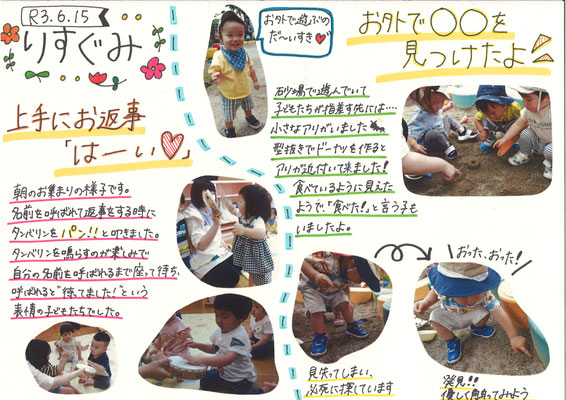 R3.6.15
りすぐみ
上手にお返事
「はーい♡」
朝のお集まりの様子です。
名前を呼ばれて返事をする時に
タンバリンをパン!!と叩きました。
タンバリンを鳴らすのが楽しみで
自分の名前を呼ばれるまで座って待ち、
呼ばれると"待ってました!"という
表情の子どもたちでした。
お外で遊ぶの
だ〜いすき♥
お外で○○を
見つけたよ
砂場で遊んでいて
子どもたちが指差す先には‥‥
小さなアリがいました
型抜きでドーナツを作ると
アリが近付いて来ました!
食べているように見えた
ようで「食べた!」と言う子も
いましたよ。
おった、おった!
見失ってしまい、
必死に探しています
発見!!
優しく触ってみよう